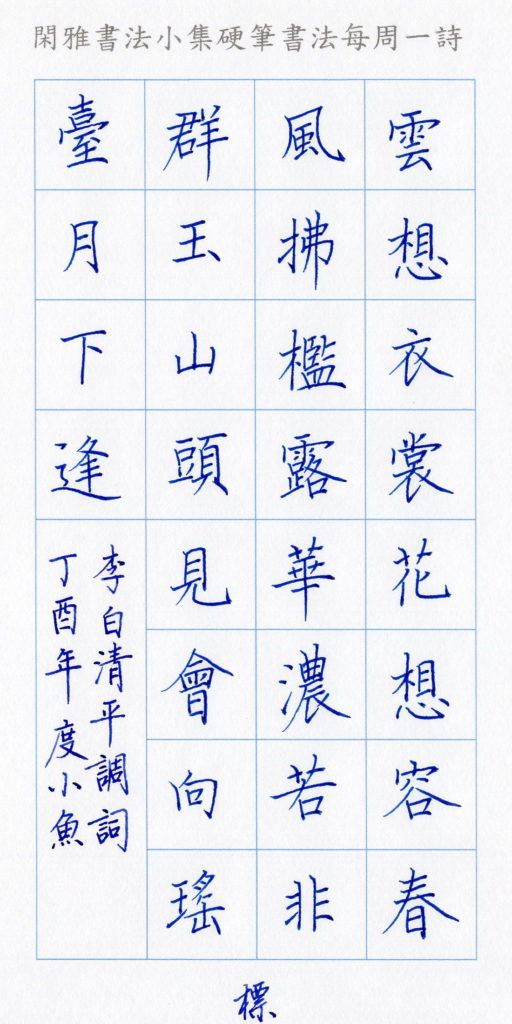 閑雅書法小集硬筆書法每周一詩
雲想衣裳花想容春
風拂檻露華濃若非
群玉山頭見會向瑤
臺月下逢
李白清平調詞
丁酉年度小魚
標